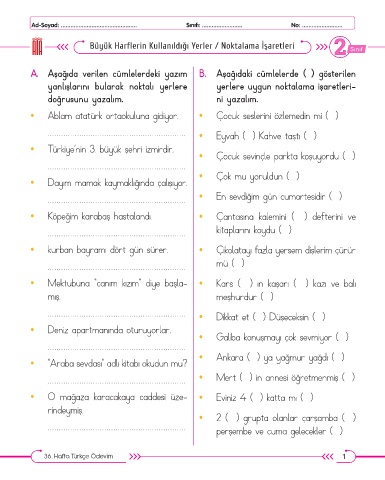 Ad-Soyad: ................................................ Sınıfı: ......................... No: .........................
Büyük Harflerin Kullanıldığı Yerler / Noktalama İşaretleri
2. Sınıf
A. Aşağıda verilen cümlelerdeki yazım
yanlışlarını bularak noktalı yerlere
doğrusunu yazalım.
• Ablam atatürk ortaokuluna gidiyor.
• Türkiye'nin 3. büyük şehri izmirdir.
• Dayım mamak kaymaklığında çalışıyor.
• Köpeğim karabaş hastalandı.
• kurban bayramı dört gün sürer.
• Mektubuna "canım kızım" diye başla-
mış.
• Deniz apartmanında oturuyorlar.
• "Araba sevdası" adlı kitabı okudun mu?
• O mağaza karacakaya caddesi üze-
rindeymiş.
B. Aşağıdaki cümlelerde ( ) gösterilen
yerlere uygun noktalama işaretleri-
ni yazalım.
• Çocuk seslerini özlemedin mi ( )
• Eyvah ( ) Kahve taştı ( )
• Çocuk sevinçle parkta koşuyordu ( )
• Çok mu yoruldun ( )
• En sevdiğim gün cumartesidir ( )
• Çantasına kalemini ( ) defterini ve
kitaplarını koydu ( )
• Çikolatayı fazla yersem dişlerim çürür
mü ( )
• Kars ( ) ın kaşarı ( ) kazı ve balı
meşhurdur ( )
• Dikkat et ( ) Düşeceksin ( )
• Galiba konuşmayı çok sevmiyor ( )
• Ankara ( ) ya yağmur yağdı ( )
• Mert ( ) in annesi öğretmenmiş ( )
• Eviniz 4 ( ) katta mı ( )
• 2 ( ) grupta olanlar çarşamba ( )
perşembe ve cuma gelecekler ( )
36. Hafta Türkçe Ödevim
1